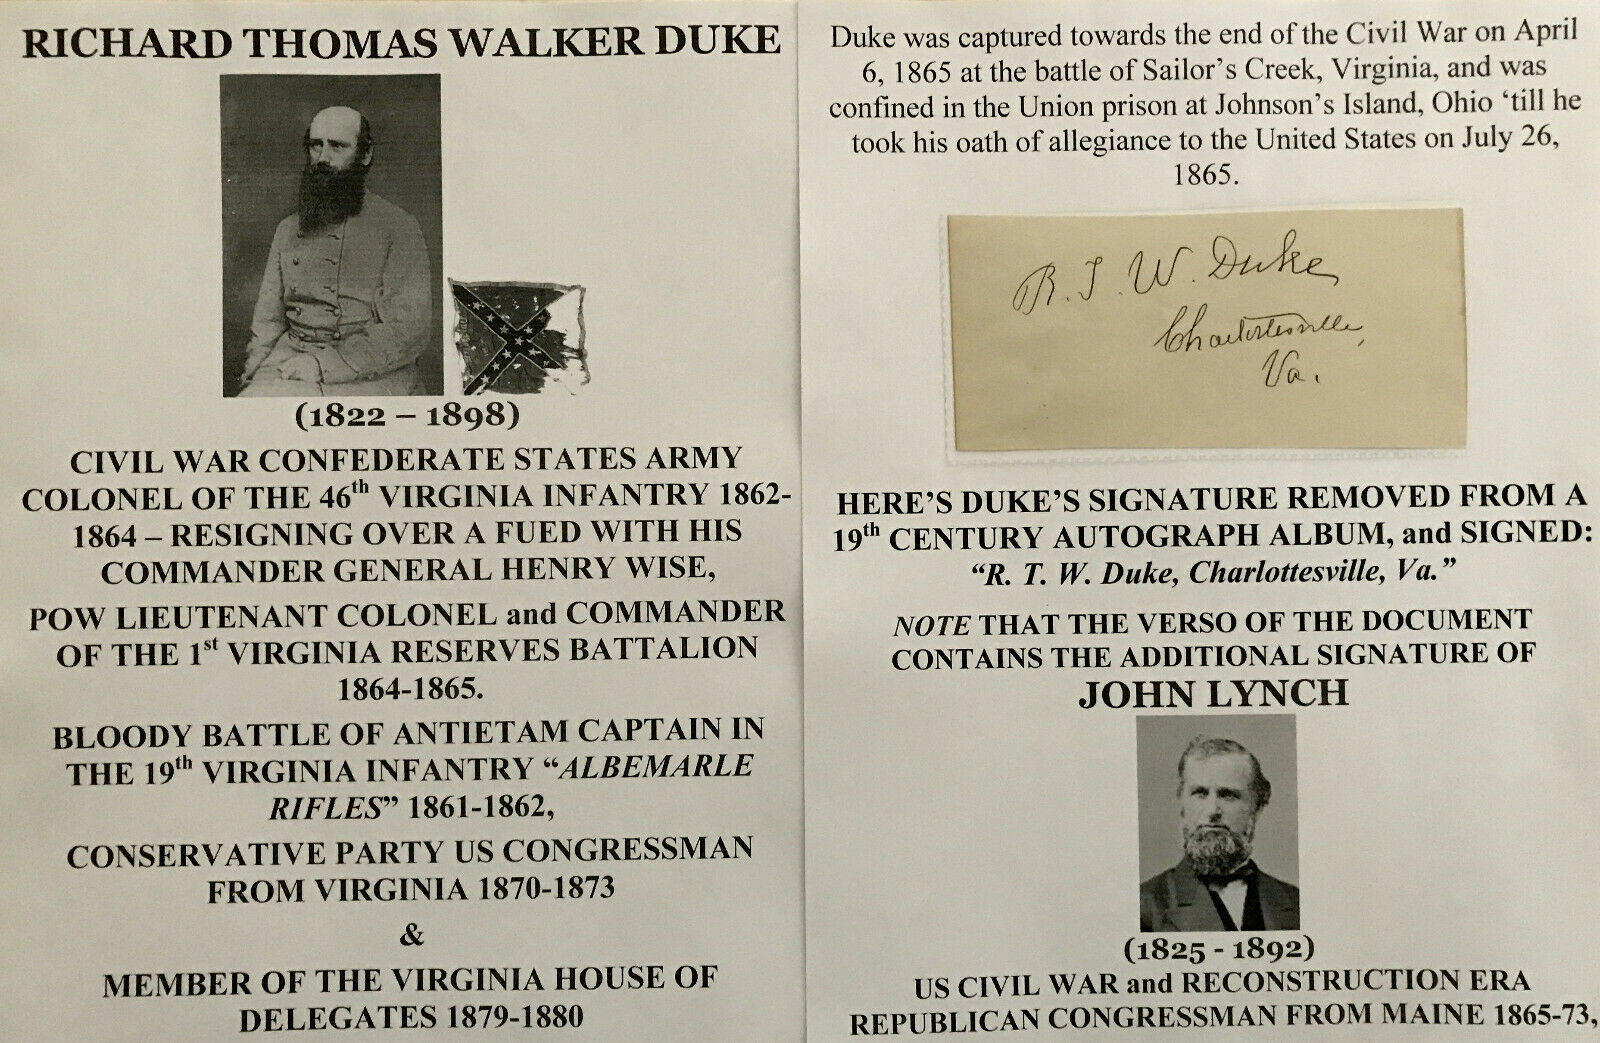 RICHARD THOMAS WALKER DUKE
(1822 – 1898)
CIVIL WAR CONFEDERATE STATES ARMY
COLONEL OF THE 46th VIRGINIA INFANTRY 1862-
1864 – RESIGNING OVER A FUED WITH HIS
COMMANDER GENERAL HENRY WISE,
POW LIEUTENANT COLONEL and COMMANDER
OF THE 1st VIRGINIA RESERVES BATTALION
1864-1865.
BLOODY BATTLE OF ANTIETAM CAPTAIN IN
THE 19th VIRGINIA INFANTRY “ALBEMARLE
RIFLES” 1861-1862,
CONSERVATIVE PARTY US CONGRESSMAN
FROM VIRGINIA 1870-1873
&
MEMBER OF THE VIRGINIA HOUSE OF
DELEGATES 1879-1880
Duke was captured towards the end of the Civil War on April
6, 1865 at the battle of Sailor’s Creek, Virginia, and was
confined in the Union prison at Johnson’s Island, Ohio ‘till he
took his oath of allegiance to the United States on July 26,
1865.
R. T. W. Duke,
Charlottesville,
Va.
HERE’S DUKE’S SIGNATURE REMOVED FROM A
19th CENTURY AUTOGRAPH ALBUM, and SIGNED:
“R. T. W. Duke, Charlottesville, Va.”
NOTE THAT THE VERSO OF THE DOCUMENT
CONTAINS THE ADDITIONAL SIGNATURE OF
JOHN LYNCH
(1825 - 1892)
US CIVIL WAR and RECONSTRUCTION ERA
REPUBLICAN CONGRESSMAN FROM MAINE 1865-73,